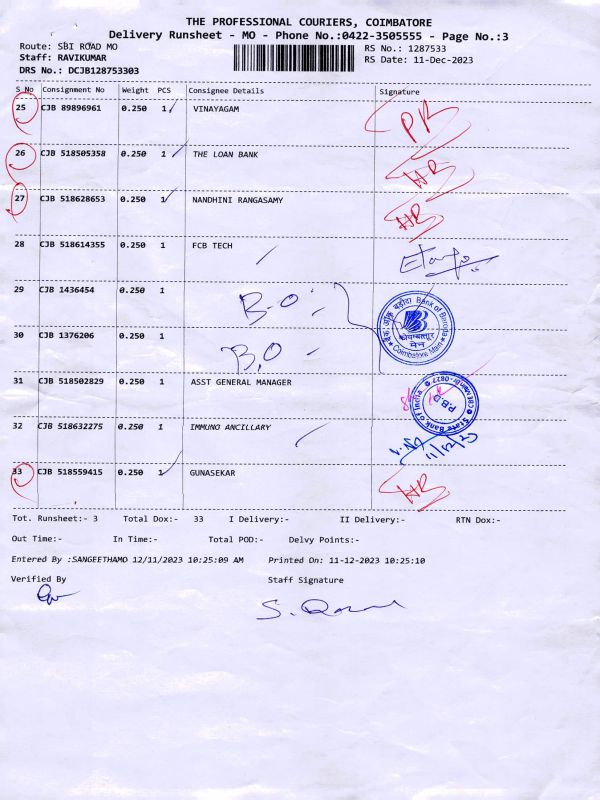 THE PROFESSIONAL COURIERS, COIMBATORE
Delivery Runsheet - MO - Phone No.:0422-3505555 - Page No.:3
Route: SBI ROAD MO
RS No.: 1287533
Staff: RAVIKUMAR
RS Date: 11-Dec-2023
DRS No.: DCJB128753303
S No Consignment No Weight PCS Consignee Details Signature
25 CJB 89896961 0.250 1 VINAYAGAM
26 CJB 518505358 0.250 1 THE LOAN BANK
27 CJB 518628653 0.250 1 NANDHINI RANGASAMY
28 CJB 518614355 0.250 1 FCB TECH
29 CJB 1436454 0.250 1 B.O
Bank of Baroda
Coimbatore Main
30 CJB 1376206 0.250 1 B.O
31 CJB 518502829 0.250 1 ASST GENERAL MANAGER
State Bank of India
P.B.D
32 CJB 518632275 0.250 1 IMMUNO ANCILLARY
11/12/23
33 CJB 518559415 0.250 1 GUNASEKAR
Tot. Runsheet:- 3 Total Dox:- 33 I Delivery:- II Delivery:- RTN Dox:-
Out Time:- In Time:- Total POD:- Delvy Points:-
Entered By :SANGEETHAMO 12/11/2023 10:25:09 AM Printed On: 11-12-2023 10:25:10
Verified By Staff Signature